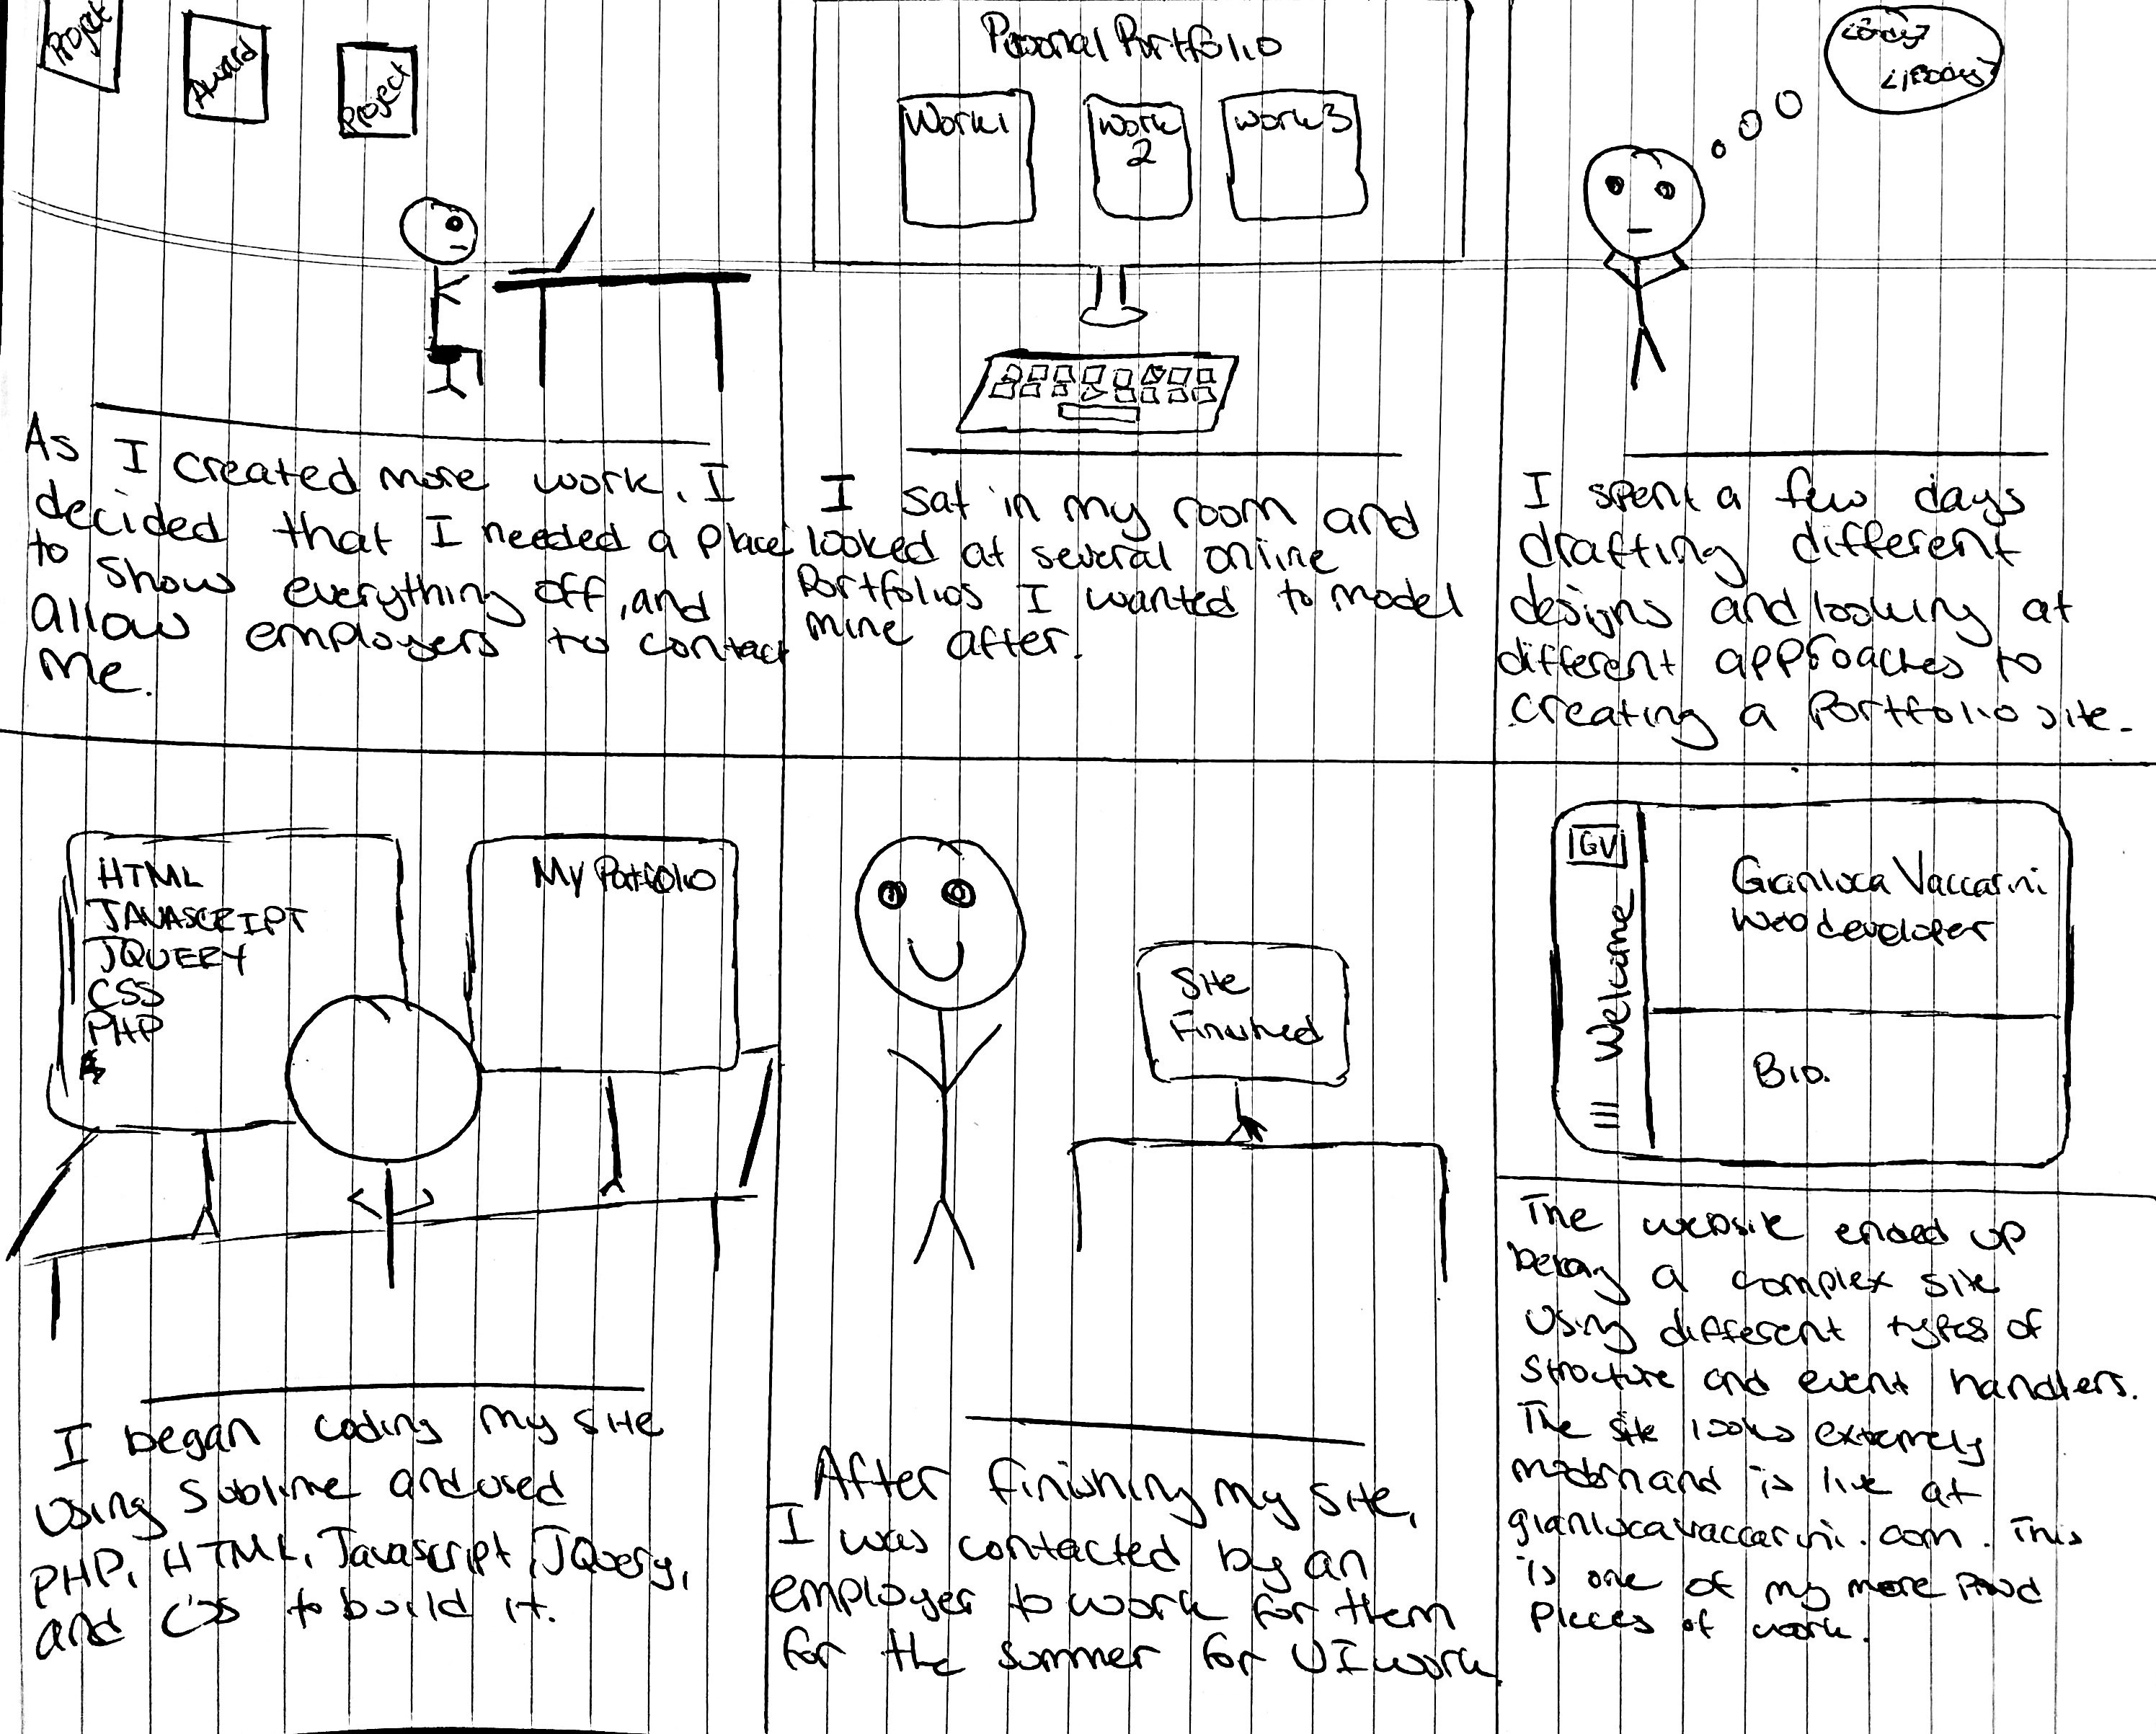 Project
Award
Project
As I created more work, I
decided that I needed a place
to show everything off, and
allow employers to contact
me.
Personal Portfolio
Work1
Work
2
Work3
I sat in my room and
looked at several online
Portfolios I wanted to model
mine after.
I spent a few days
drafting different
designs and looking at
different approaches to
creating a Portfolio site.
HTML
JAVASCRIPT
JQUERY
CSS
PHP
My Portfolio
I began coding my site
using Sublime and used
PHP, HTML, Javascript, JQuery,
and CSS to build it.
Site
Finished
After finishing my site,
I was contacted by an
employer to work for them
for the summer for UI work
GV
Welcome
Gianluca Vaccarini
Web developer
Bio.
The website ended up
being a complex site
using different types of
structure and event handlers.
The site looks extremely
modern and is live at
gianlucavaccarini.com. This
is one of my more proud
pieces of work.